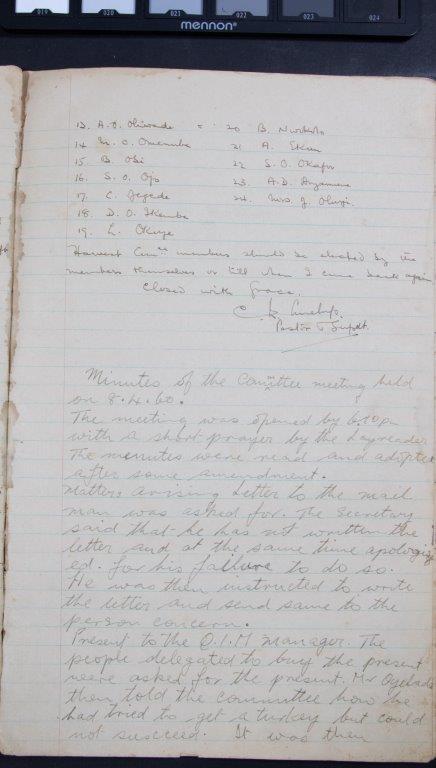 019 020 021 022 023 024
mennon
13. A. O. 20 B.
14 O. 21 A.
15 B. Obi 22 S. O. Okafor
16. S. O. Ojo 23. A.D.
17. C. Jegede 24. Mrs. J.
18. D. O.
19. L.
Harvest members should be elected by the
members themselves or till when I come back again
Closed with Grace.
Pastor & Supdt.
Minutes of the Committee meeting held
on 8.4.60.
The meeting was opened by 6.10pm
with a short prayer by the Layreader
The minutes were read and adopted
after some amendment.
Matters arising Letter to the mail
man was asked for. The Secretary
said that he has not written the
letter and at the same time apologiz
ed. for his failure to do so.
He was then instructed to write
the letter and send same to the
person concern.
Present to the O.I.M manager. The
people delegated to buy the present
were asked for the present. Mr
then told the committee how he
had tried to get a turkey but could
not succeed. It was then